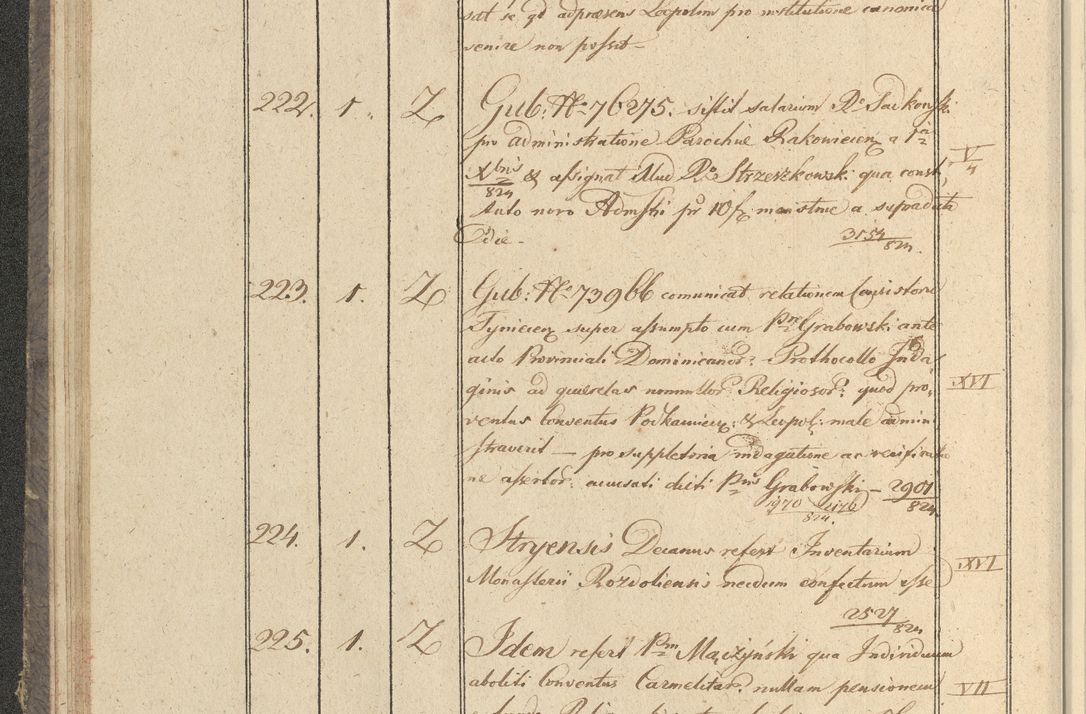 sat se qd adpraesens Leopolim pro institutione canonica
venire non possit –
222. 1. Z Gub: No 76275. sistit salarium Rd Sadkowski
pro administratione Parochiae Rakoviecen a 1a
Xbris 824 & assignat illud Rdo Strzeszkowski qua consti,
tuto novo Admstri pr 10 f menstrue a supradicta
die – 3154/824.
V/4
223. 1. Z Gub: No 73966 comunicat relationem Consistorii
Tyniecien super assumpto cum Pre Grabowski ante
acto Provinciali Dominicanor: Prothocollo Inda
ginis ad querelas nonnullor: Religiosor: quod pro,
ventus Conventus Podkamien: & Leopol: male admini
straverit — pro suppletoria indagatione ac verificatio
ne assertor: accusati dicti Pris Grabowski – 2901/824
1970 824.
XVI
224. 1. Z Stryensis Decanus refert Inventarium
Monasterii Rozdoliensis necdum confectum esse
2527/824
XVI
225. 1. Z Idem refert Pm Mączyński qua Individuum
aboliti Conventus Carmelitar: nullam pensionem
VII